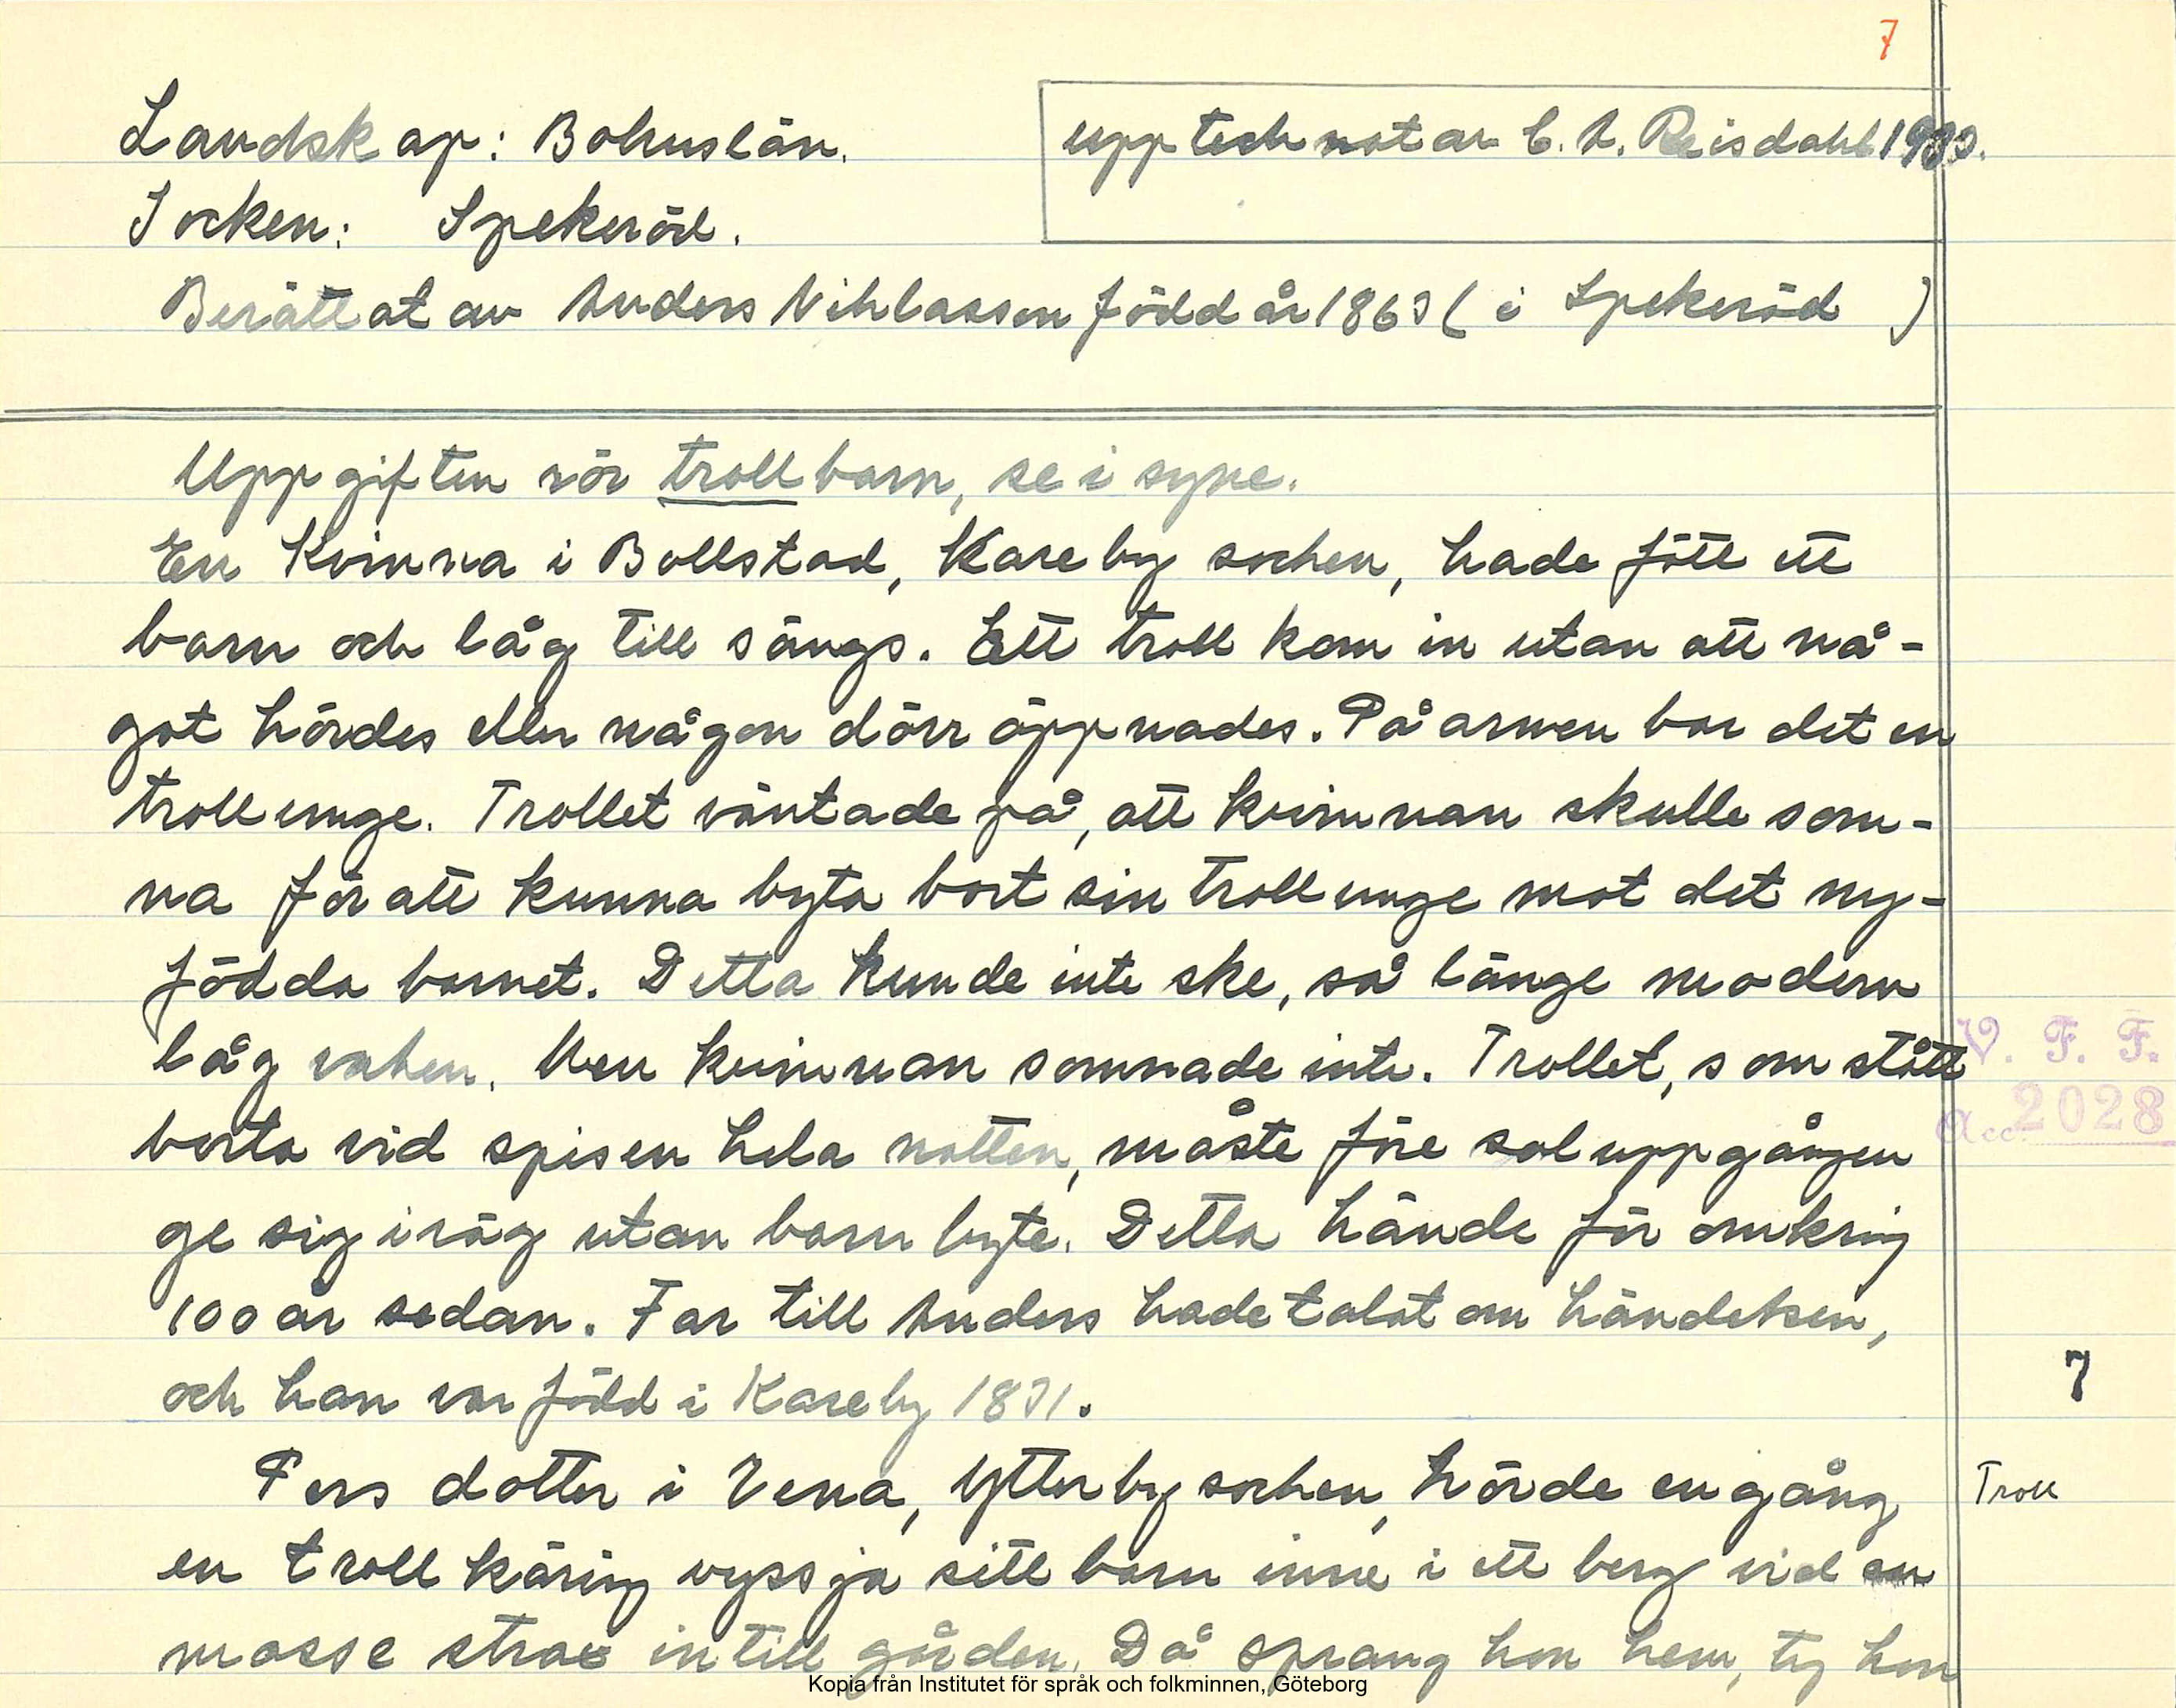 7
Landskap: Bohuslän.
upptecknat av C. A. Reisdahl 1930.
Socken: Spekeröd.
Berättat av Anders Niklasson född år 1863 ( i Spekeröd )
Uppgiften rör trollbarn, se i syne.
En Kvinna i Bollstad, Kareby socken, hade fött ett
barn och låg till sängs. Ett troll kom in utan att nå-
got hördes eller någon dörr öppnades. På armen bar det en
trollunge. Trollet väntade på, att kvinnan skulle som-
na för att kunna byta bort sin trollunge mot det ny-
födda barnet. Detta kunde inte ske, så länge modern
låg vaken. Men kvinnan somnade inte. Trollet, som stått
V. F. F.
borta vid spisen hela natten, måste före soluppgången
Acc. 2028
ge sig iväg utan barnbyte. Detta hände för omkring
100 år sedan. Far till Anders hade talat om händelsen,
och han var född i Kareby 1831.
7
Pers dotter i Vena, Ytterby socken, hörde en gång
Troll
en trollkäring vyssja sitt barn inne i ett berg vid en
mosse strax intill gården. Då sprang hon hem, ty hon
Kopia från Institutet för språk och folkminnen, Göteborg